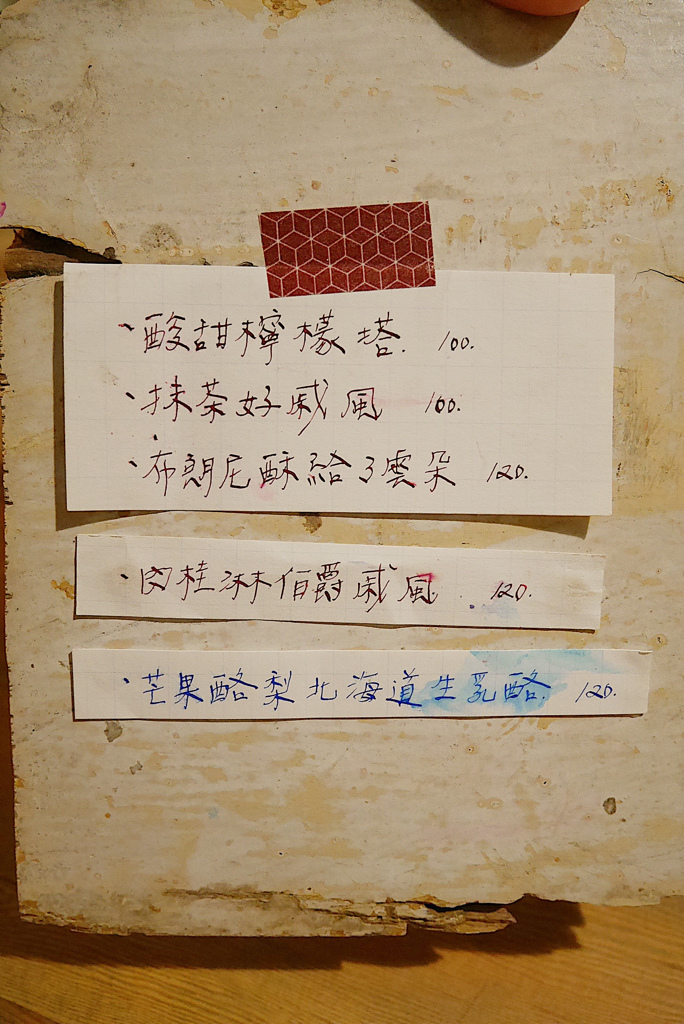 、酸甜檸檬塔. 100.
、抹茶好戚風 100.
、布朗尼酥給了雲朵 120.
、肉桂淋伯爵戚風. 120.
、芒果酪梨北海道生乳酪. 120.